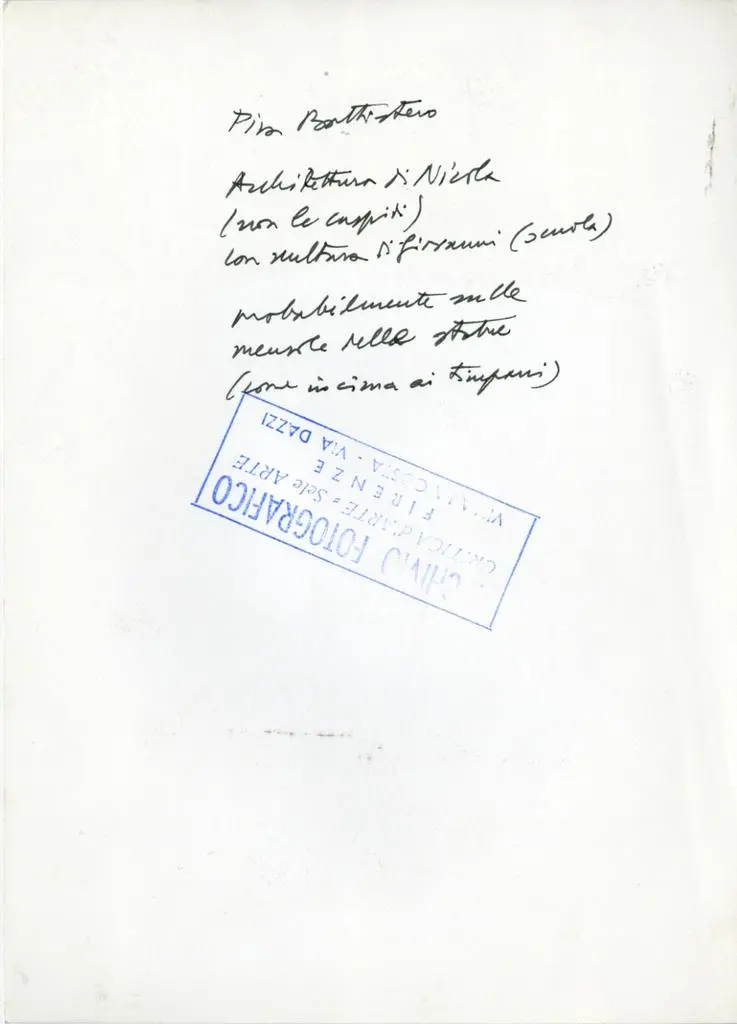 Pisa Battistero
Architettura di Nicola
(non le cuspidi)
con scultura di Giovanni (scuola)
probabilmente sulle
mensole delle statue
(come in cima ai timpani)
ARCHIVIO FOTOGRAFICO
CRITICA d'ARTE e Sele ARTE
FIRENZE
VILLA LA COSTA - VIA DAZZI